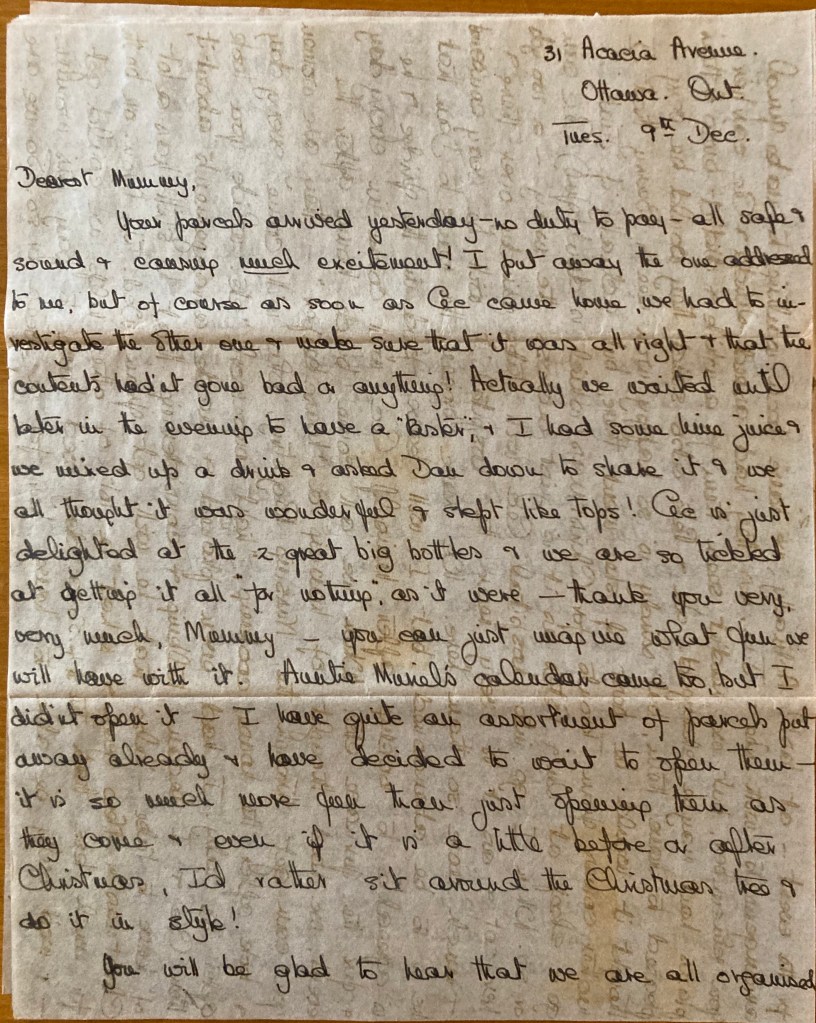 31 Acacia Avenue.
Ottawa. Ont.
Tues. 9th Dec.
Dearest Mummy,
Your parcels arrived yesterday – no duty to pay – all safe &
sound & causing much excitement! I put away the one addressed
to me, but of course as soon as Cec came home, we had to in-
vestigate the other one & make sure that it was all right & that the
contents hadn't gone bad or anything! Actually we waited until
later in the evening to have a "taster", & I had some lime juice &
we mixed up a drink & asked Dan down to share it & we
all thought it was wonderful & slept like tops! Cec is just
delighted at the 2 great big bottles & we are so tickled
at getting it all "for nothing", as it were – thank you very,
very much, Mummy – you can just imagine what fun we
will have with it. Auntie Muriel's calendar came too, but I
didn't open it – I have quite an assortment of parcels put
away already & have decided to wait to open them –
it is so much more fun than just opening them as
they come & even if it is a little before or after
Christmas, I'd rather sit around the Christmas tree &
do it in style!
You will be glad to hear that we are all organised